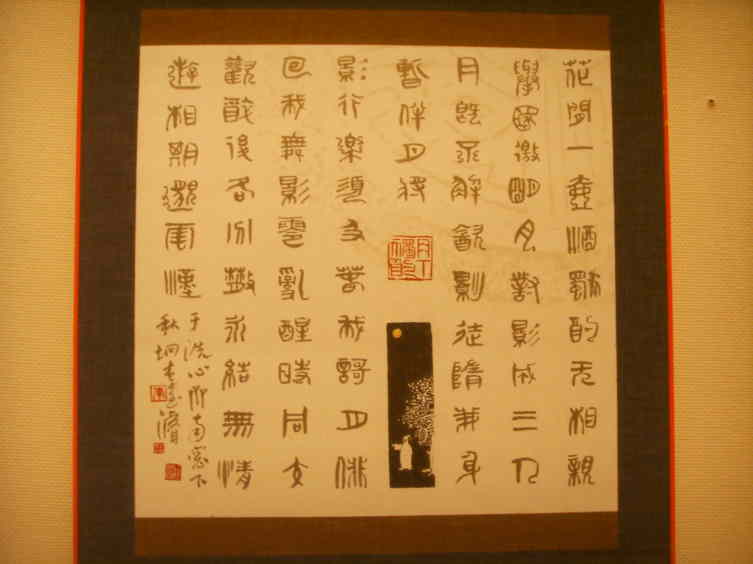 花間一壺酒獨酌无相親
舉杯邀明月對影成三人
月既不解飲影徒隨我身
暫伴月將
月下獨酌
影行樂須及春我歌月俳
回我舞影零亂醒時同交
歡散後各分散永結無情
遊相期邈雲漢
于洗心
南窗下
秋